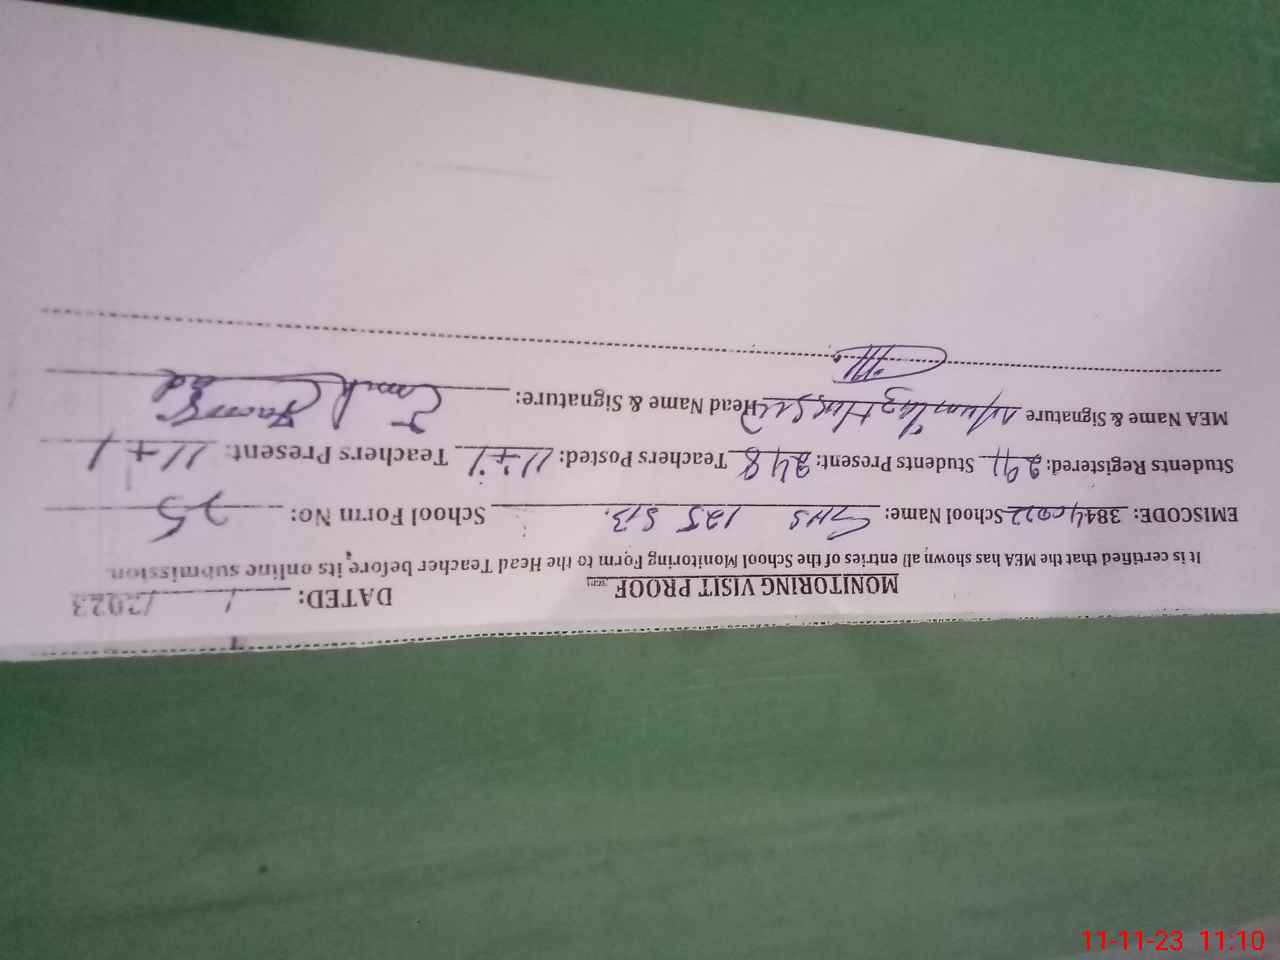 MONITORING VISIT PROOF DATED: / /2023
It is certified that the MEA has shown all entries of the School Monitoring Form to the Head Teacher before its online submission.
EMISCODE: 3844 School Name: GHS 125 S/B. School Form No: 25
Students Registered: 291 Students Present: 248 Teachers Posted: 11+1 Teachers Present: 11+1
MEA Name & Signature Head Name & Signature:
11-11-23 11:10